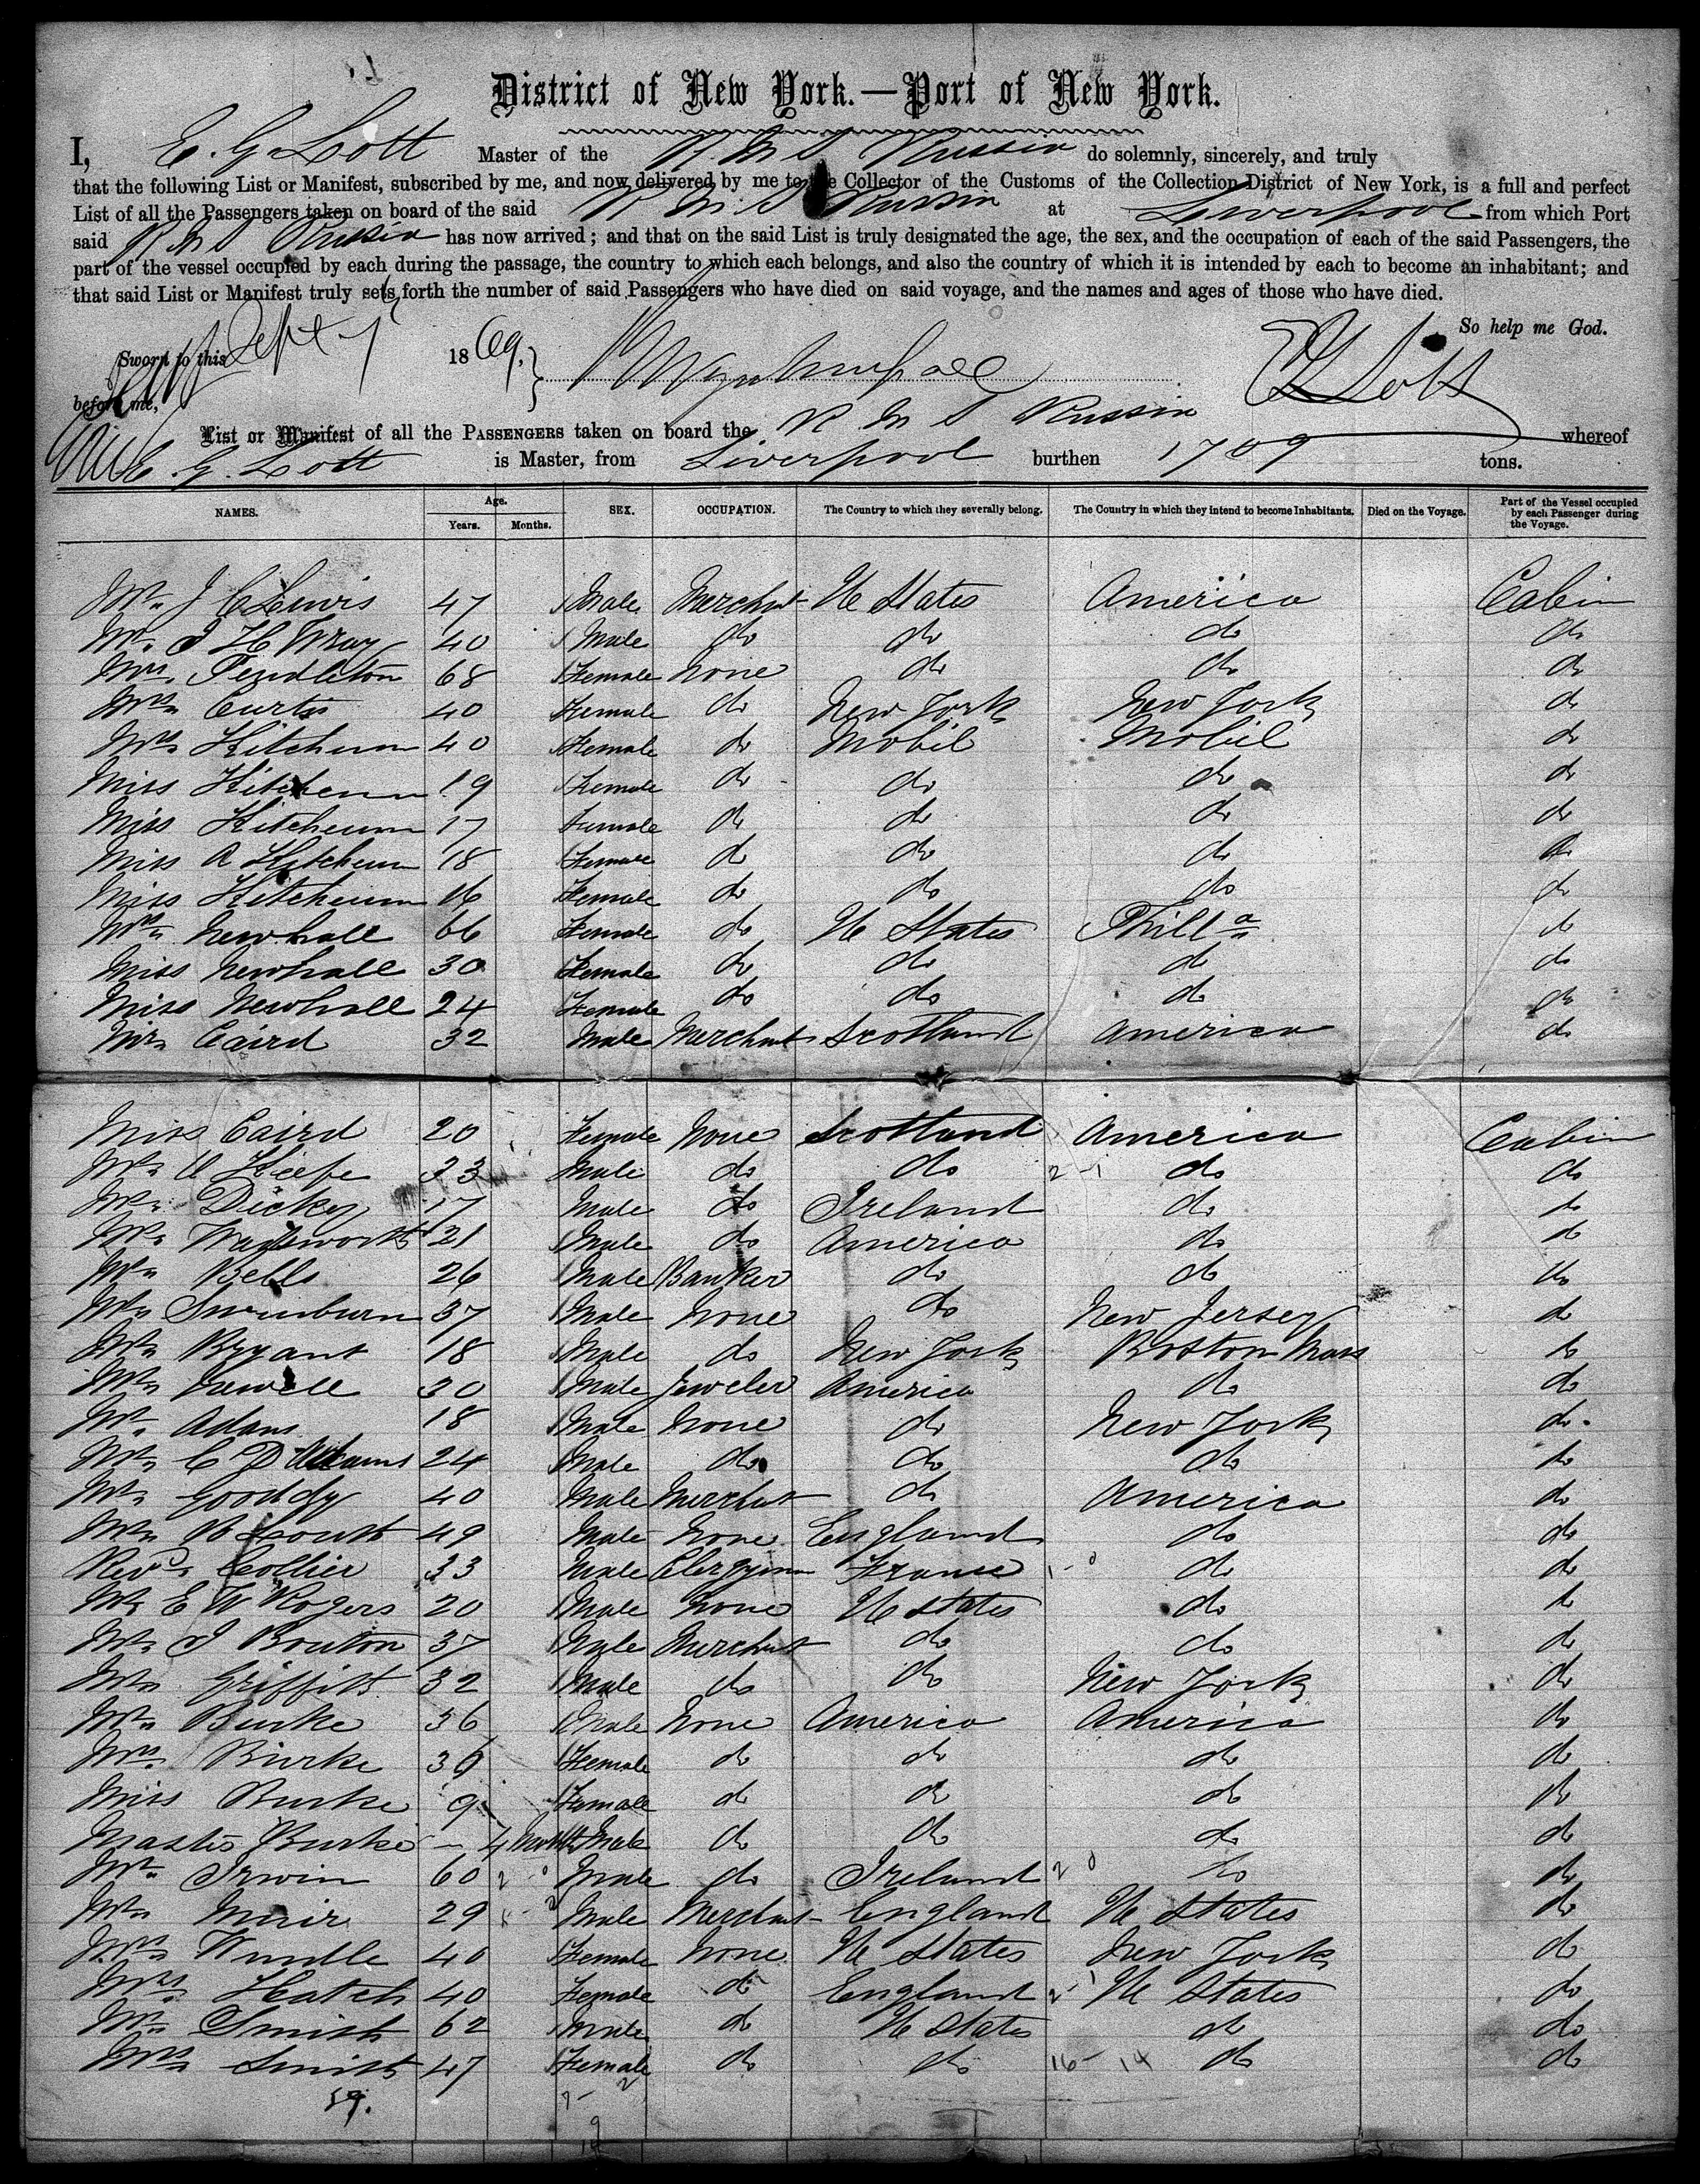 District of New York.—Port of New York.
I, E. G. Lott Master of the R. M. S. Russia do solemnly, sincerely, and truly
that the following List or Manifest, subscribed by me, and now delivered by me to the Collector of the Customs of the Collection District of New York, is a full and perfect
List of all the Passengers taken on board of the said R M S Russia at Liverpool from which Port
said R M S Russia has now arrived; and that on the said List is truly designated the age, the sex, and the occupation of each of the said Passengers, the
part of the vessel occupied by each during the passage, the country to which each belongs, and also the country of which it is intended by each to become an inhabitant; and
that said List or Manifest truly sets forth the number of said Passengers who have died on said voyage, and the names and ages of those who have died.
So help me God.
Sworn to this Sept 1869.
before me, E G Lott
List or Manifest of all the PASSENGERS taken on board the R M S Russia whereof
E. G. Lott is Master, from Liverpool burthen 1709 tons.
NAMES. Age. Years. Months. SEX. OCCUPATION. The Country to which they severally belong. The Country in which they intend to become Inhabitants. Died on the Voyage. Part of the Vessel occupied by each Passenger during the Voyage.
Mr. J C Lewis 47 Male Merchant U States America Cabin
Mr. J H Wray 40 Male do do do do
Mrs. Pendleton 68 Female None do do do
Mrs Curtis 40 Female do New York New York do
Mrs Kitchum 40 Female do Mobil Mobil do
Miss Kitchum 19 Female do do do do
Miss Kitchum 17 Female do do do do
Miss R Kitchum 18 Female do do do do
Miss Kitchum 16 Female do do do do
Mrs Newhall 66 Female do U States Philla do
Miss Newhall 30 Female do do do do
Miss Newhall 24 Female do do do do
Mr Caird 32 Male Merchant Scotland America do
Miss Caird 20 Female None Scotland America Cabin
Mr O Kiefe 23 Male do do 2 - 1 do do
Mr Dickey 17 Male do Ireland do do
Mr Wadsworth 21 Male do America do do
Mr Bells 26 Male Banker do do do
Mr Swinburn 37 Male None do New Jersey do
Mr Bryant 18 Male do New York Boston Mass do
Mr Jewell 30 Male Jeweler America do do
Mr Adams 18 Male None do New York do.
Mr C D Adams 24 Male do do do do
Mr Gooddy 40 Male Merchant do America do
Mr 49 Male None England do do
Revd. Collier 33 Male Clergyman France 1 - 0 do do
Mr E W Rogers 20 Male None U States do do
Mr J Bouton 37 Male Merchant do do do
Mr Griffith 32 Male do do New York do
Mr Burke 36 Male None America America do
Mrs. Burke 36 Female do do do do
Miss Burke 9 Female do do do do
Master Burke – 4 Months Male do do do do
Mr Irwin 60 Male do Ireland 2 0 do do
Mr Muir 29 Male Merchant England U States do
Mrs Wendle 40 Female None U States New York do
Mrs Hatch 40 Female do England 2 - 1 U States do
Mr Smith 62 Male do U States do do
Mrs Smith 47 Female do do 16 - 14 do do
59.